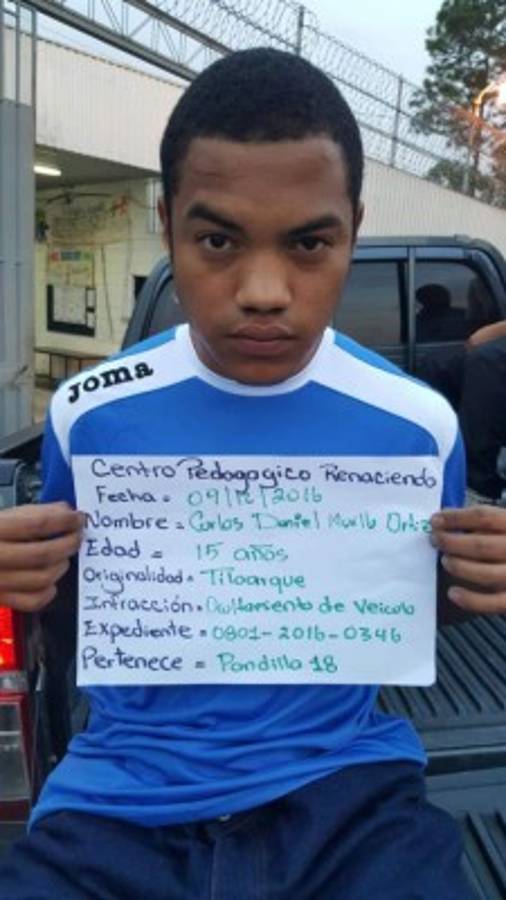 joma
Centro Pedagogico Renaciendo
Fecha = 09/12/2016
Nombre = Carlos Daniel Murllo Ortiz
Edad = 15 años
Originalidad = Tiloarque
Intracción = Ocultamento de Veiculo
Expediente = 0801-2016-0346
Pertenece = Pandilla 18